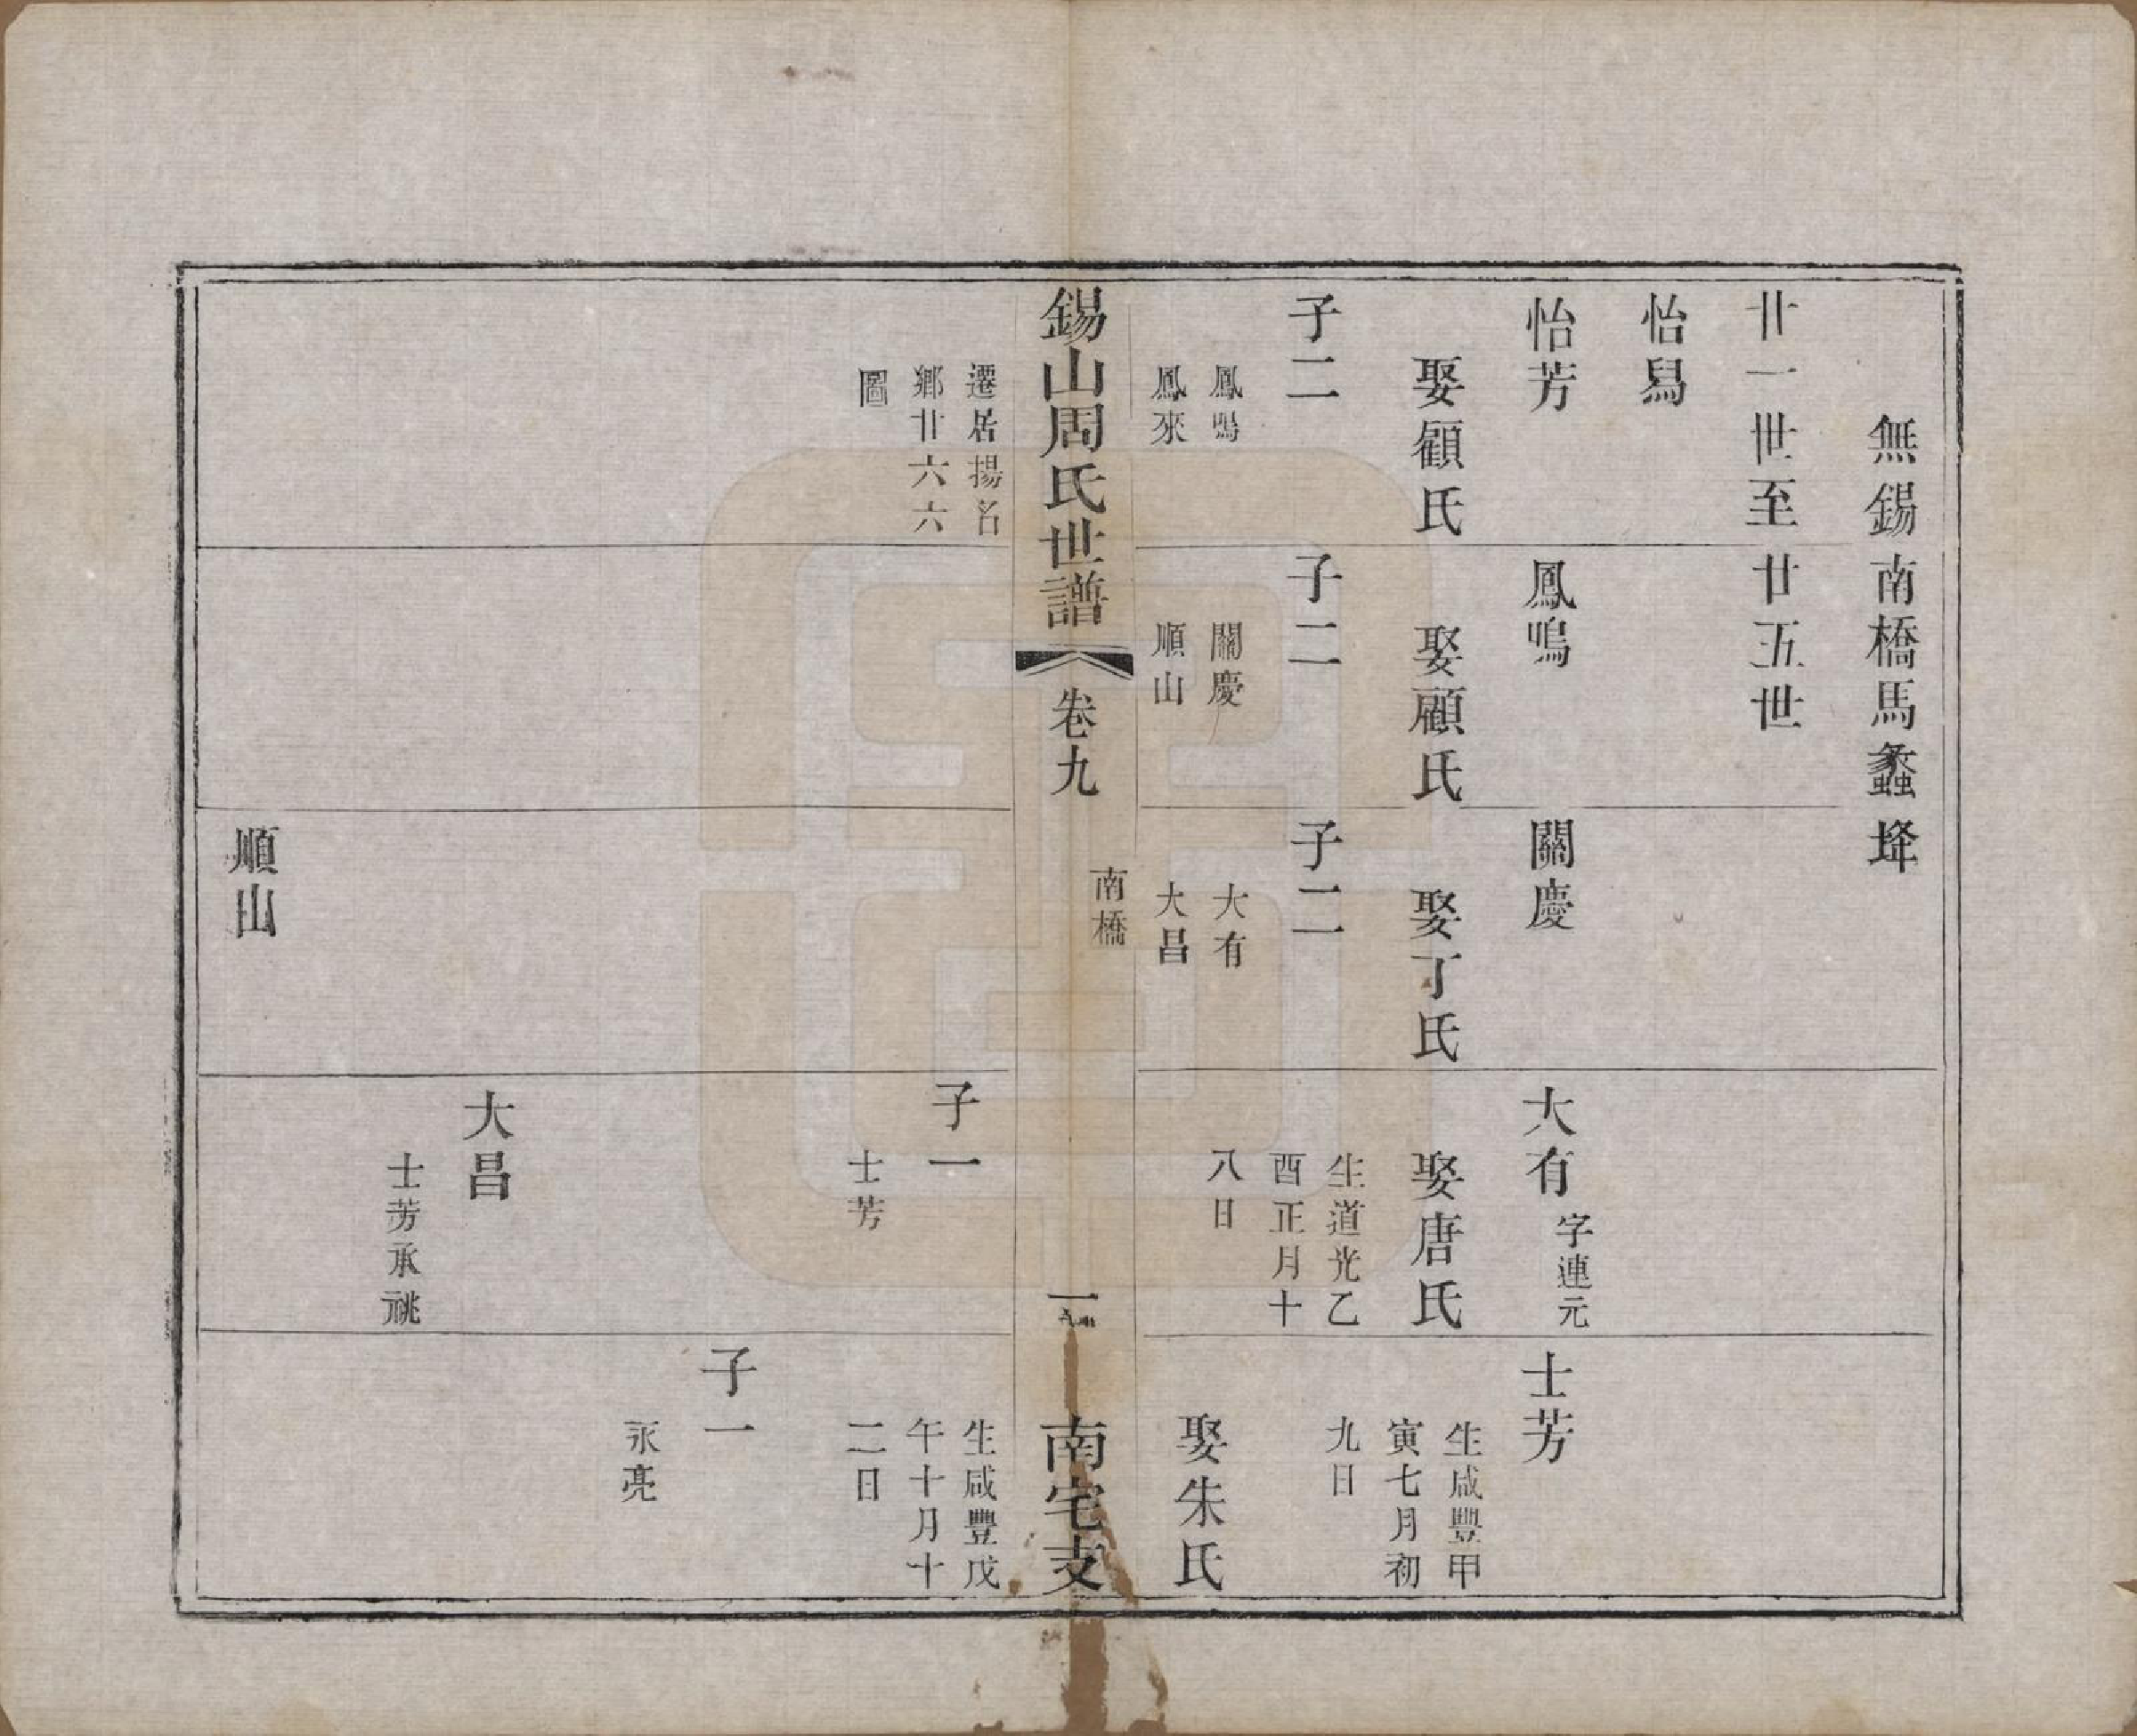 無錫南橋馬蠡埄
廿一世至廿五世
怡舄
怡芳
娶顧氏
子二
鳳鳴
鳳來
鳳鳴
娶顧氏
子二
關慶
順山
關慶
娶丁氏
子二
大有
大昌
大有 字連元
娶唐氏
生道光乙
酉正月十
八日
士芳
生咸豐甲
寅七月初
九日
娶朱氏
錫山周氏世譜
卷九
南橋
一
南宅支
遷居揚名
鄉廿六六
圖
順山
子一
士芳
大昌
士芳承祧
生咸豐戊
午十月十
二日
子一
永亮